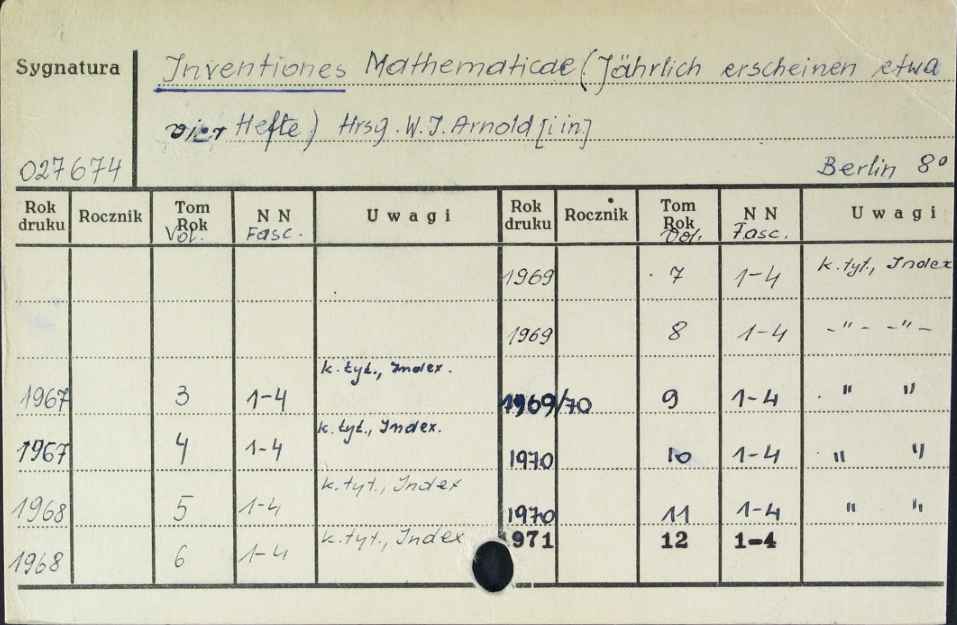 Sygnatura Inventiones Mathematicae (Jährlich erscheinen etwa
vier Hefte) Hrsg. W. I. Arnold [i in]
027674 Berlin 8°
Rok druku Rocznik Tom Rok Vol. N N Fasc. Uwagi Rok druku Rocznik Tom Rok Vol. N N Fasc. Uwagi
1969 7 1-4 k. tyt., Index
1969 8 1-4 -"- -"-
1967 3 1-4 k. tyt., Index. 1969/70 9 1-4 " "
1967 4 1-4 k. tyt., Index. 1970 10 1-4 " "
1968 5 1-4 k. tyt., Index 1970 11 1-4 " "
1968 6 1-4 k. tyt., Index 1971 12 1-4